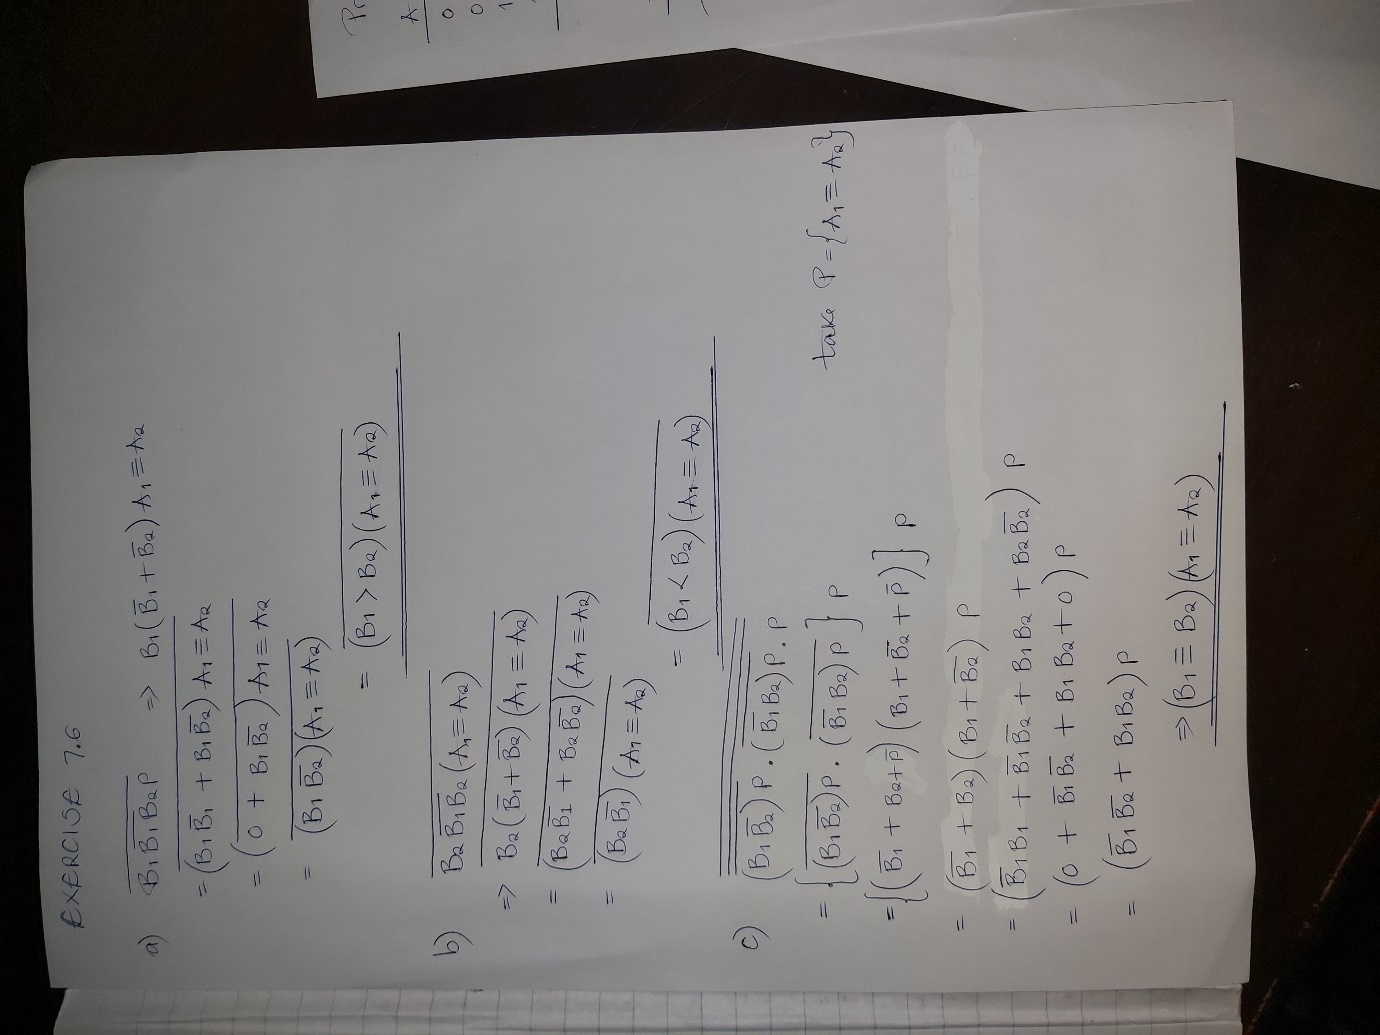 EXERCISE 7.6
a) \overline{B₁\overline{B₁B₂}P} => \overline{B₁(B̅₁+B̅₂)A₁≡A₂}
= \overline{(B₁B̅₁ + B₁B̅₂)A₁≡A₂}
= \overline{(0 + B₁B̅₂)A₁≡A₂}
= \overline{(B₁B̅₂)(A₁≡A₂)}
= \overline{(B₁>B₂)(A₁≡A₂)}
b) \overline{B₂\overline{B₁B₂}(A₁≡A₂)}
=> \overline{B₂(B̅₁+B̅₂)(A₁≡A₂)}
= \overline{(B₂B̅₁ + B₂B̅₂)(A₁≡A₂)}
= \overline{(B₂B̅₁)(A₁≡A₂)}
= \overline{(B₁<B₂)(A₁≡A₂)}
c) \overline{\overline{\overline{(B₁B̅₂)P}.\overline{(B̅₁B₂)P}.P}}
= {\overline{(B₁B̅₂)P}.\overline{(B̅₁B₂)P}}P take P={A₁≡A₂}
={(B̅₁+B₂+P̅)(B₁+B̅₂+P̅)}P
= (B̅₁+B₂)(B₁+B̅₂)P
= (B̅₁B₁ + B̅₁B̅₂ + B₁B₂ + B₂B̅₂)P
= (0 + B̅₁B̅₂ + B₁B₂+0)P
= (B̅₁B̅₂ + B₁B₂)P
=> (B₁≡B₂)(A₁≡A₂)